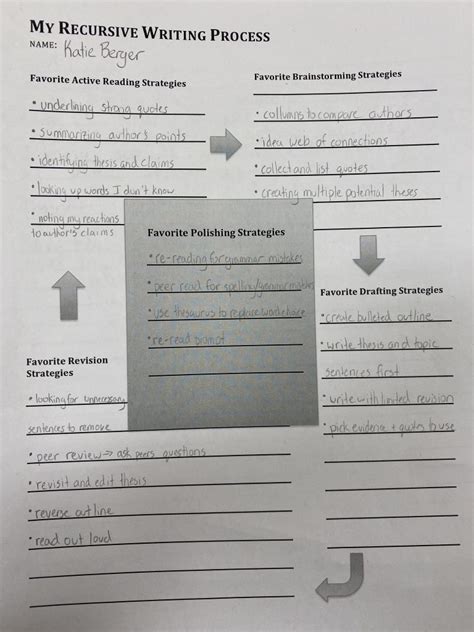 MY RECURSIVE WRITING PROCESS
NAME: Katie Berger
Favorite Active Reading Strategies
• underlining strong quotes
• summarizing author's points
• identifying thesis and claims
• looking up words I don't know
• noting my reactions
to author's claims
Favorite Brainstorming Strategies
• collumns to compare authors
• idea web of connections
• collect and list quotes
• creating multiple potential theses
Favorite Polishing Strategies
• re-reading for grammar mistakes
• peer read for spelling/grammar mistakes
• use thesaurus to replace word choice
• re-read prompt
Favorite Drafting Strategies
• create bulleted outline
• write thesis and topic
sentences first
• write with limited revision
• pick evidence + quotes to use
Favorite Revision
Strategies
• looking for unnecessary
sentences to remove
• peer review → ask peers questions
• revisit and edit thesis
• reverse outline
• read out loud